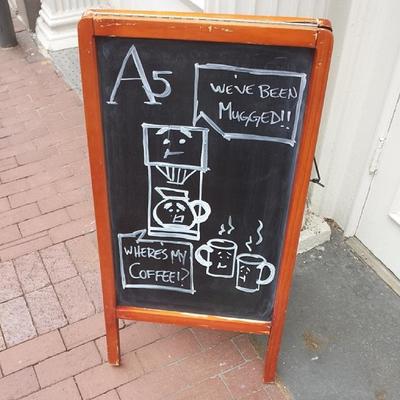 A5
WE'VE BEEN
MUGGED!!
WHERE'S MY
COFFEE!?